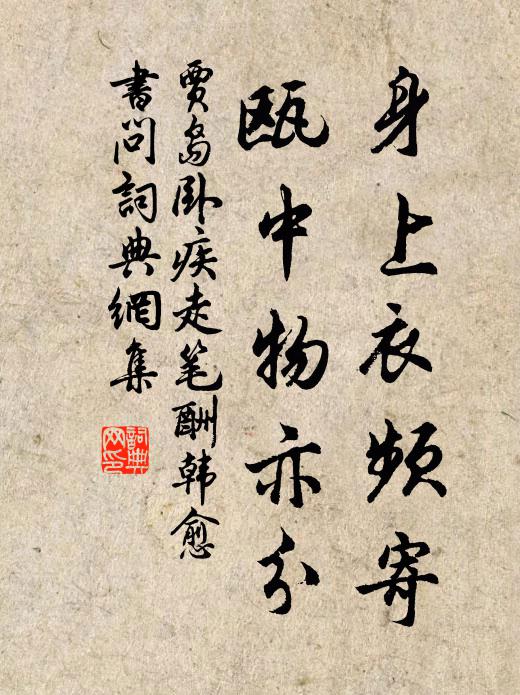 身上衣频寄
瓯中物亦分
贾岛卧疾走笔酬韩愈
書问詞典網集
詞典网印